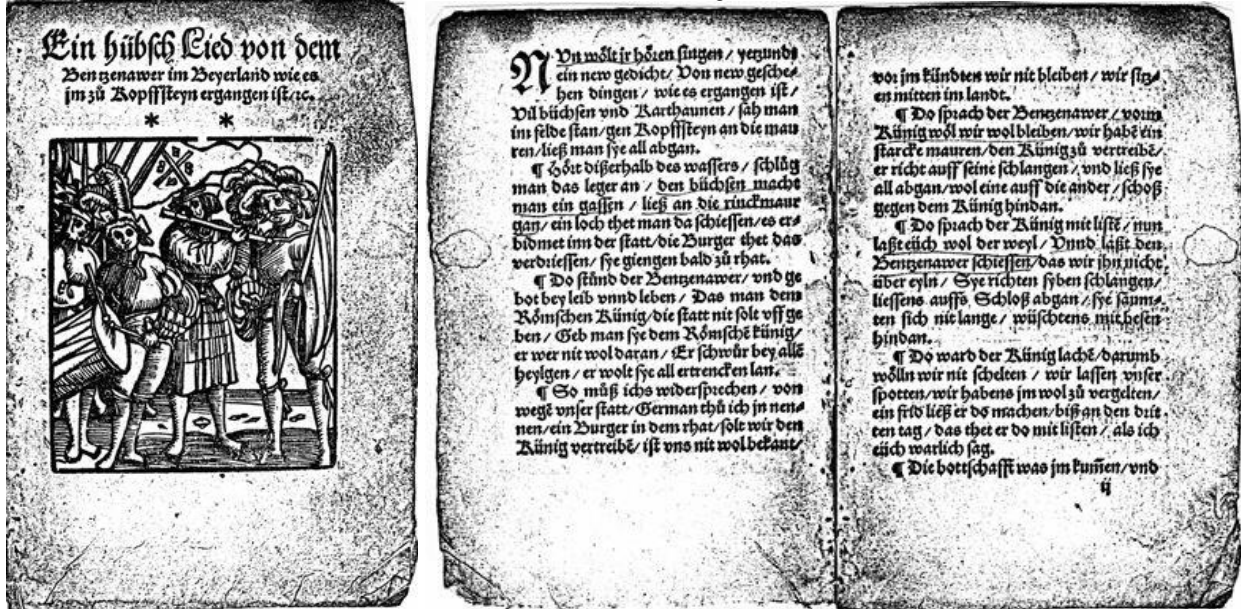 Ein hübsch Lied von dem
Bentzenawer im Beyerland wie es
jm zů Kopffsteyn ergangen ist/ ꝛc.
* *
NUn wölt jr hören singen / yetzunds
ein new gedicht/ Von new gesche-
hen dingen / wie es ergangen ist /
Vil büchsen vnd Karthaunen / sah man
im felde stan/ gen Kopffsteyn an die mau
ren/ ließ man sye all abgan.
¶ Hört dißerhalb des wassers / schlůg
man das leger an / den büchsen macht
man ein gassen / ließ an die rinckmaur
gan/ ein loch thet man da schiessen/ es er-
bidmet inn der statt/ die Burger thet das
verdriessen / sye giengen bald zů rhat.
¶ Do stůnd der Bentzenawer/ vnd ge
bot bey leib vnnd leben / Das man dem
Römschen Künig/ die statt nit solt vff ge
ben / Geb man sye dem Römschē künig/
er wer nit wol daran / Er schwůr bey allē
heylgen / er wolt sye all ertrencken lan.
¶ So můß ichs widersprechen / von
wegē vnser statt/ German thů ich jn nen-
nen/ ein Burger in dem rhat/ solt wir den
Künig vertreibē/ ist vns nit wol bekant/
vor jm kündten wir nit bleiben / wir sitz-
en mitten im landt.
¶ Do sprach der Bentzenawer/ vorm
Künig wöl wir wol bleiben/ wir habē ein
starcke mauren/ den Künig zů vertreibē/
er richt auff seine schlangen / vnd ließ sye
all abgan/ wol eine auff die ander / schoß
gegen dem Künig hindan.
¶ Do sprach der Künig mit listē / nun
laßt eüch wol der weyl / Vnnd laßt den
Bentzenawer schiessen/ das wir jhn nicht
über eyln / Sye richten syben schlangen/
liessens auffs Schloß abgan / sye saum-
ten sich nit lange / wüschtens mit besen
hindan.
¶ Do ward der Künig lachē/ darumb
wölln wir nit schelten / wir lassen vnser
spotten/ wir habens jm wol zů vergelten/
ein frid ließ er do machen/ biß an den drit
ten tag / das thet er do mit listen / als ich
eüch warlich sag.
¶ Die bottschafft was jm kum̄en/ vnd
ij